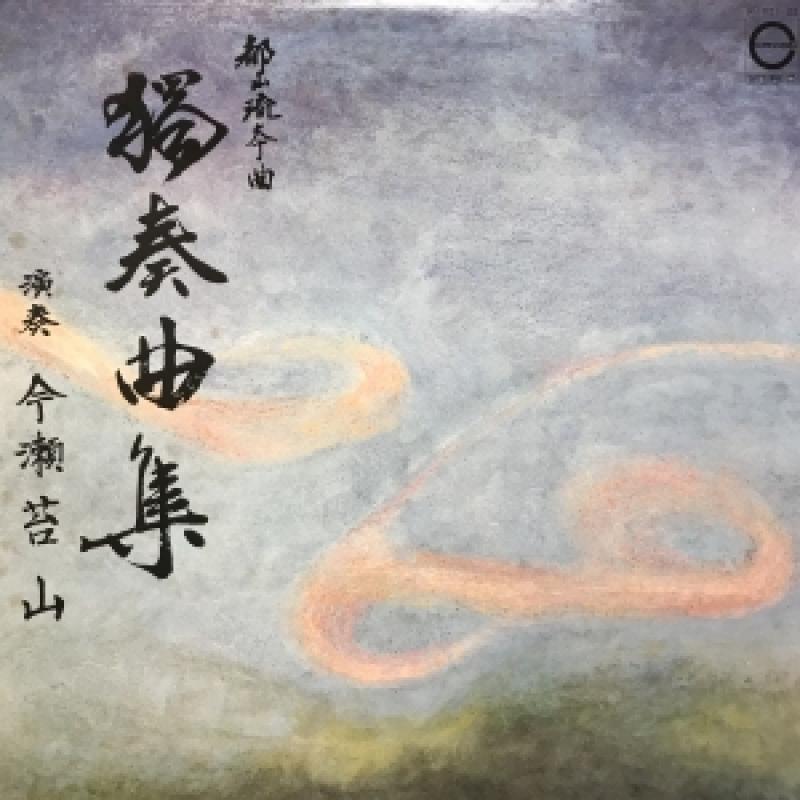 都山流本曲
獨奏曲集
演奏 今瀬苔山